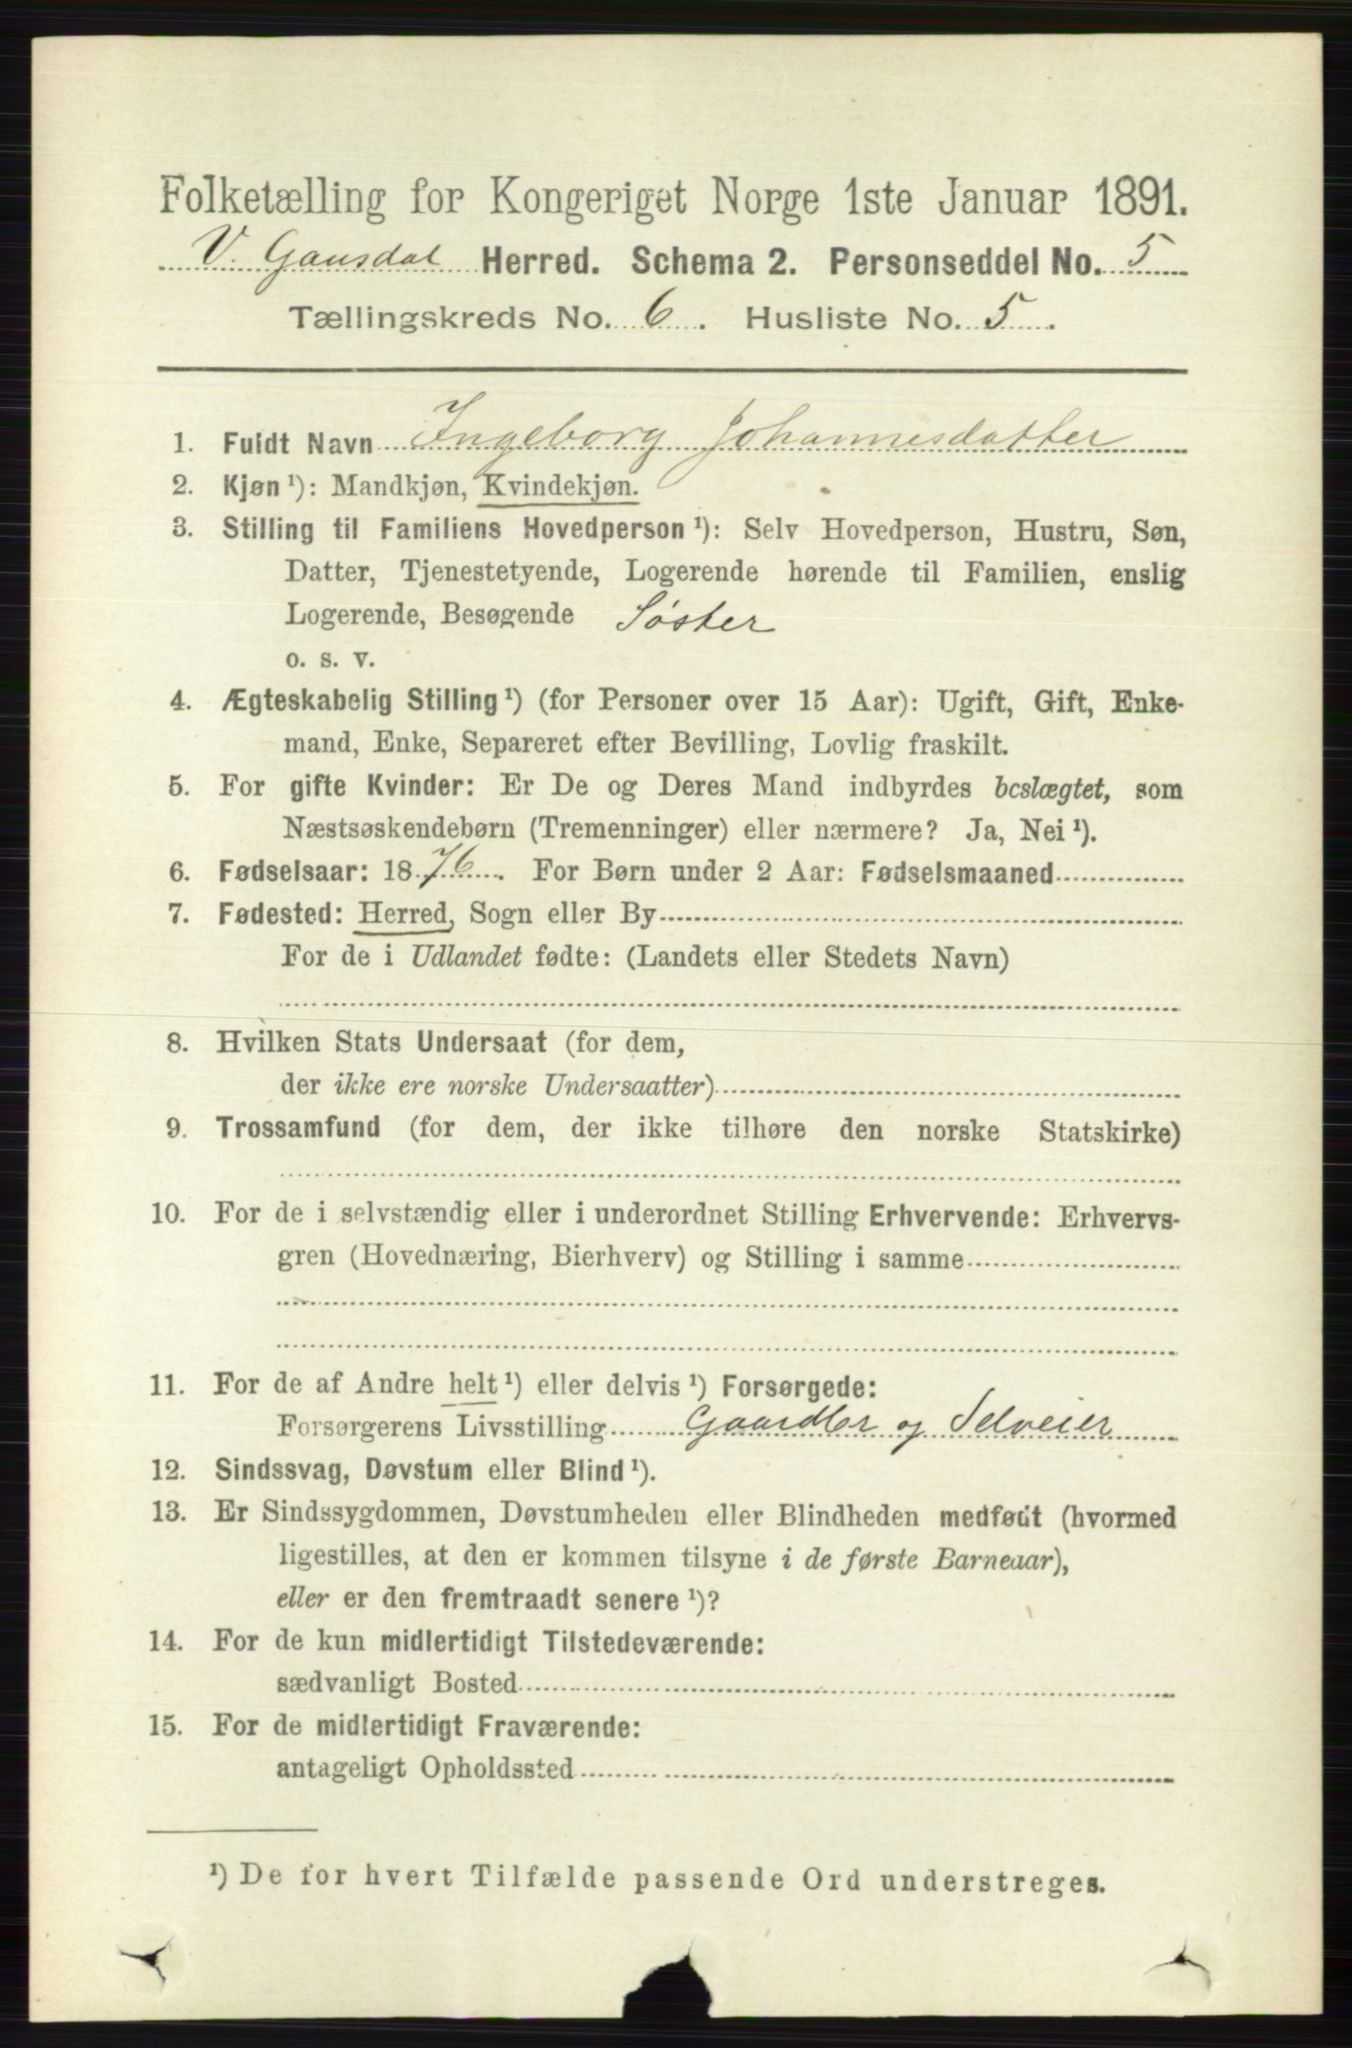 Folketælling for Kongeriget Norge 1ste Januar 1891.
V. Gausdal Herred. Schema 2. Personseddel No. 5
Tællingskreds No. 6. Husliste No. 5.
1. Fuldt Navn Ingeborg Johannesdatter
2. Kjøn ¹): Mandkjøn, Kvindekjøn.
3. Stilling til Familiens Hovedperson ¹): Selv Hovedperson, Hustru, Søn,
Datter, Tjenestetyende, Logerende hørende til Familien, enslig
Logerende, Besøgende Søster
o. s. v.
4. Ægteskabelig Stilling ¹) (for Personer over 15 Aar): Ugift, Gift, Enke-
mand, Enke, Separeret efter Bevilling, Lovlig fraskilt.
5. For gifte Kvinder: Er De og Deres Mand indbyrdes beslægtet, som
Næstsøskendebørn (Tremenninger) eller nærmere? Ja, Nei ¹).
6. Fødselsaar: 1876. For Børn under 2 Aar: Fødselsmaaned
7. Fødested: Herred, Sogn eller By
For de i Udlandet fødte: (Landets eller Stedets Navn)
8. Hvilken Stats Undersaat (for dem,
der ikke ere norske Undersaatter)
9. Trossamfund (for dem, der ikke tilhøre den norske Statskirke)
10. For de i selvstændig eller i underordnet Stilling Erhvervende: Erhvervs-
gren (Hovednæring, Bierhverv) og Stilling i samme
11. For de af Andre helt ¹) eller delvis ¹) Forsørgede:
Forsørgerens Livsstilling Gaardbr og Selveier
12. Sindssvag, Døvstum eller Blind ¹).
13. Er Sindssygdommen, Døvstumheden eller Blindheden medfødt (hvormed
ligestilles, at den er kommen tilsyne i de første Barneaar),
eller er den fremtraadt senere ¹)?
14. For de kun midlertidigt Tilstedeværende:
sædvanligt Bosted
15. For de midlertidigt Fraværende:
antageligt Opholdssted
¹) De for hvert Tilfælde passende Ord understreges.